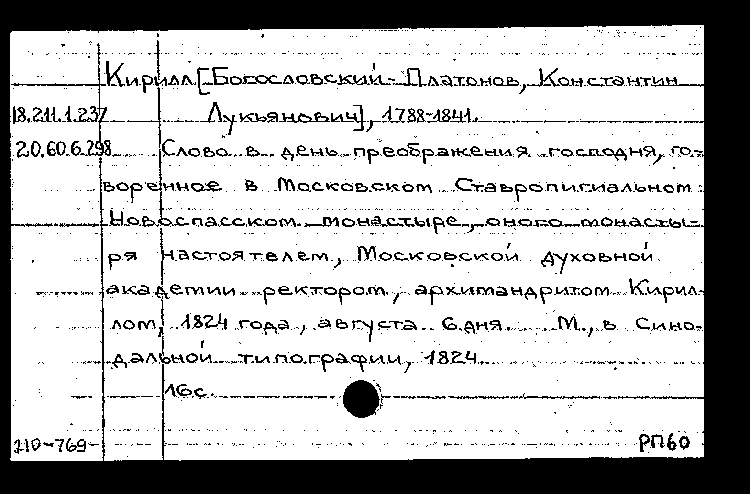 Кирилл [Богословский-Платонов, Константин
18.211.1.237 Лукьянович], 1788-1841.
20.60.6.298 Слово в день преображения господня, го-
воренное в Московском Ставропигиальном
Новоспасском монастыре, оного монасты-
ря настоятелем, Московской духовной
академии ректором, архимандритом Кирил-
лом, 1824 года, августа 6 дня. М., в Сино-
дальной типографии, 1824.
16с.
210-769- РП60